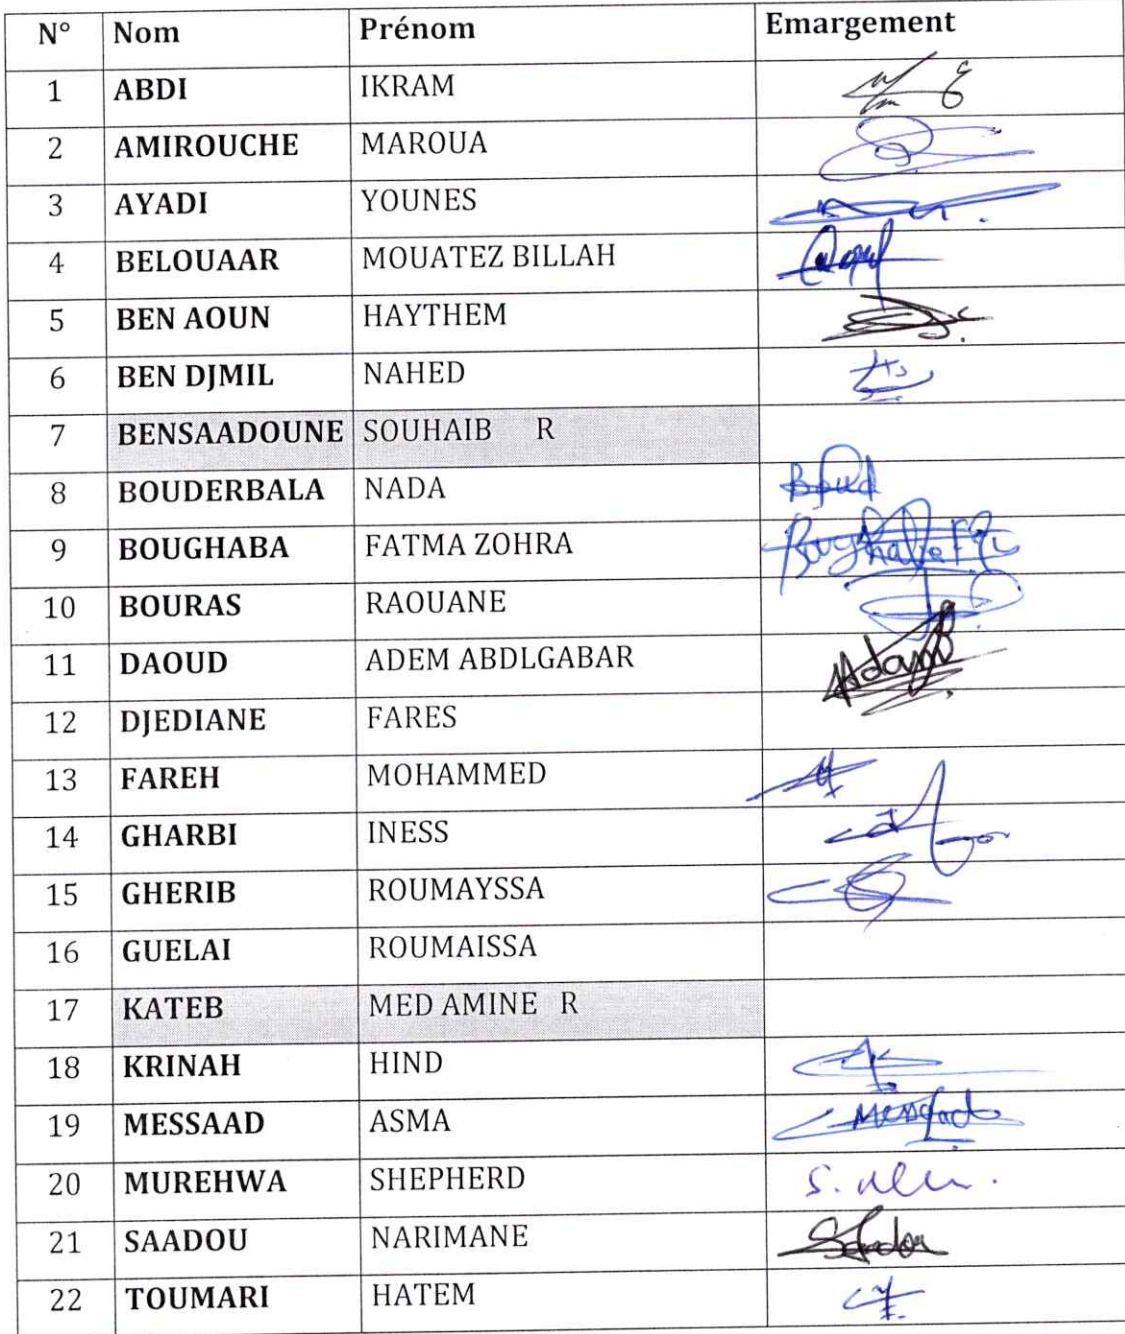 N° Nom Prénom Emargement
1 ABDI IKRAM
2 AMIROUCHE MAROUA
3 AYADI YOUNES
4 BELOUAAR MOUATEZ BILLAH
5 BEN AOUN HAYTHEM
6 BEN DJMIL NAHED
7 BENSAADOUNE SOUHAIB R
8 BOUDERBALA NADA
9 BOUGHABA FATMA ZOHRA
10 BOURAS RAOUANE
11 DAOUD ADEM ABDLGABAR
12 DJEDIANE FARES
13 FAREH MOHAMMED
14 GHARBI INESS
15 GHERIB ROUMAYSSA
16 GUELAI ROUMAISSA
17 KATEB MED AMINE R
18 KRINAH HIND
19 MESSAAD ASMA
20 MUREHWA SHEPHERD
21 SAADOU NARIMANE
22 TOUMARI HATEM